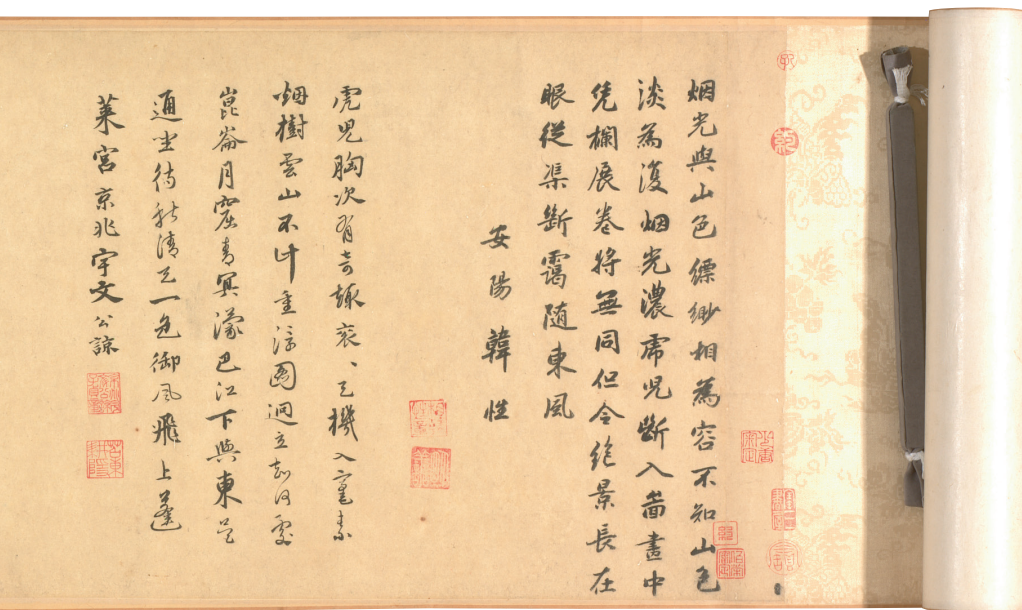 烟光與山色縹緲相為容不知山色
淡為復烟光濃虎児斷入畨畫中
凭欄展卷將無同但令絶景長在
眼從渠斷靄随東風
安陽韓性
虎児胸次有奇趣衮、天機入毫素
烟樹雲山不計重淙圖迥立知何處
崑崙月窟青冥濛巴江下與東吳
通坐待秋清天一色御風飛上蓬
萊宮京兆宇文公諒